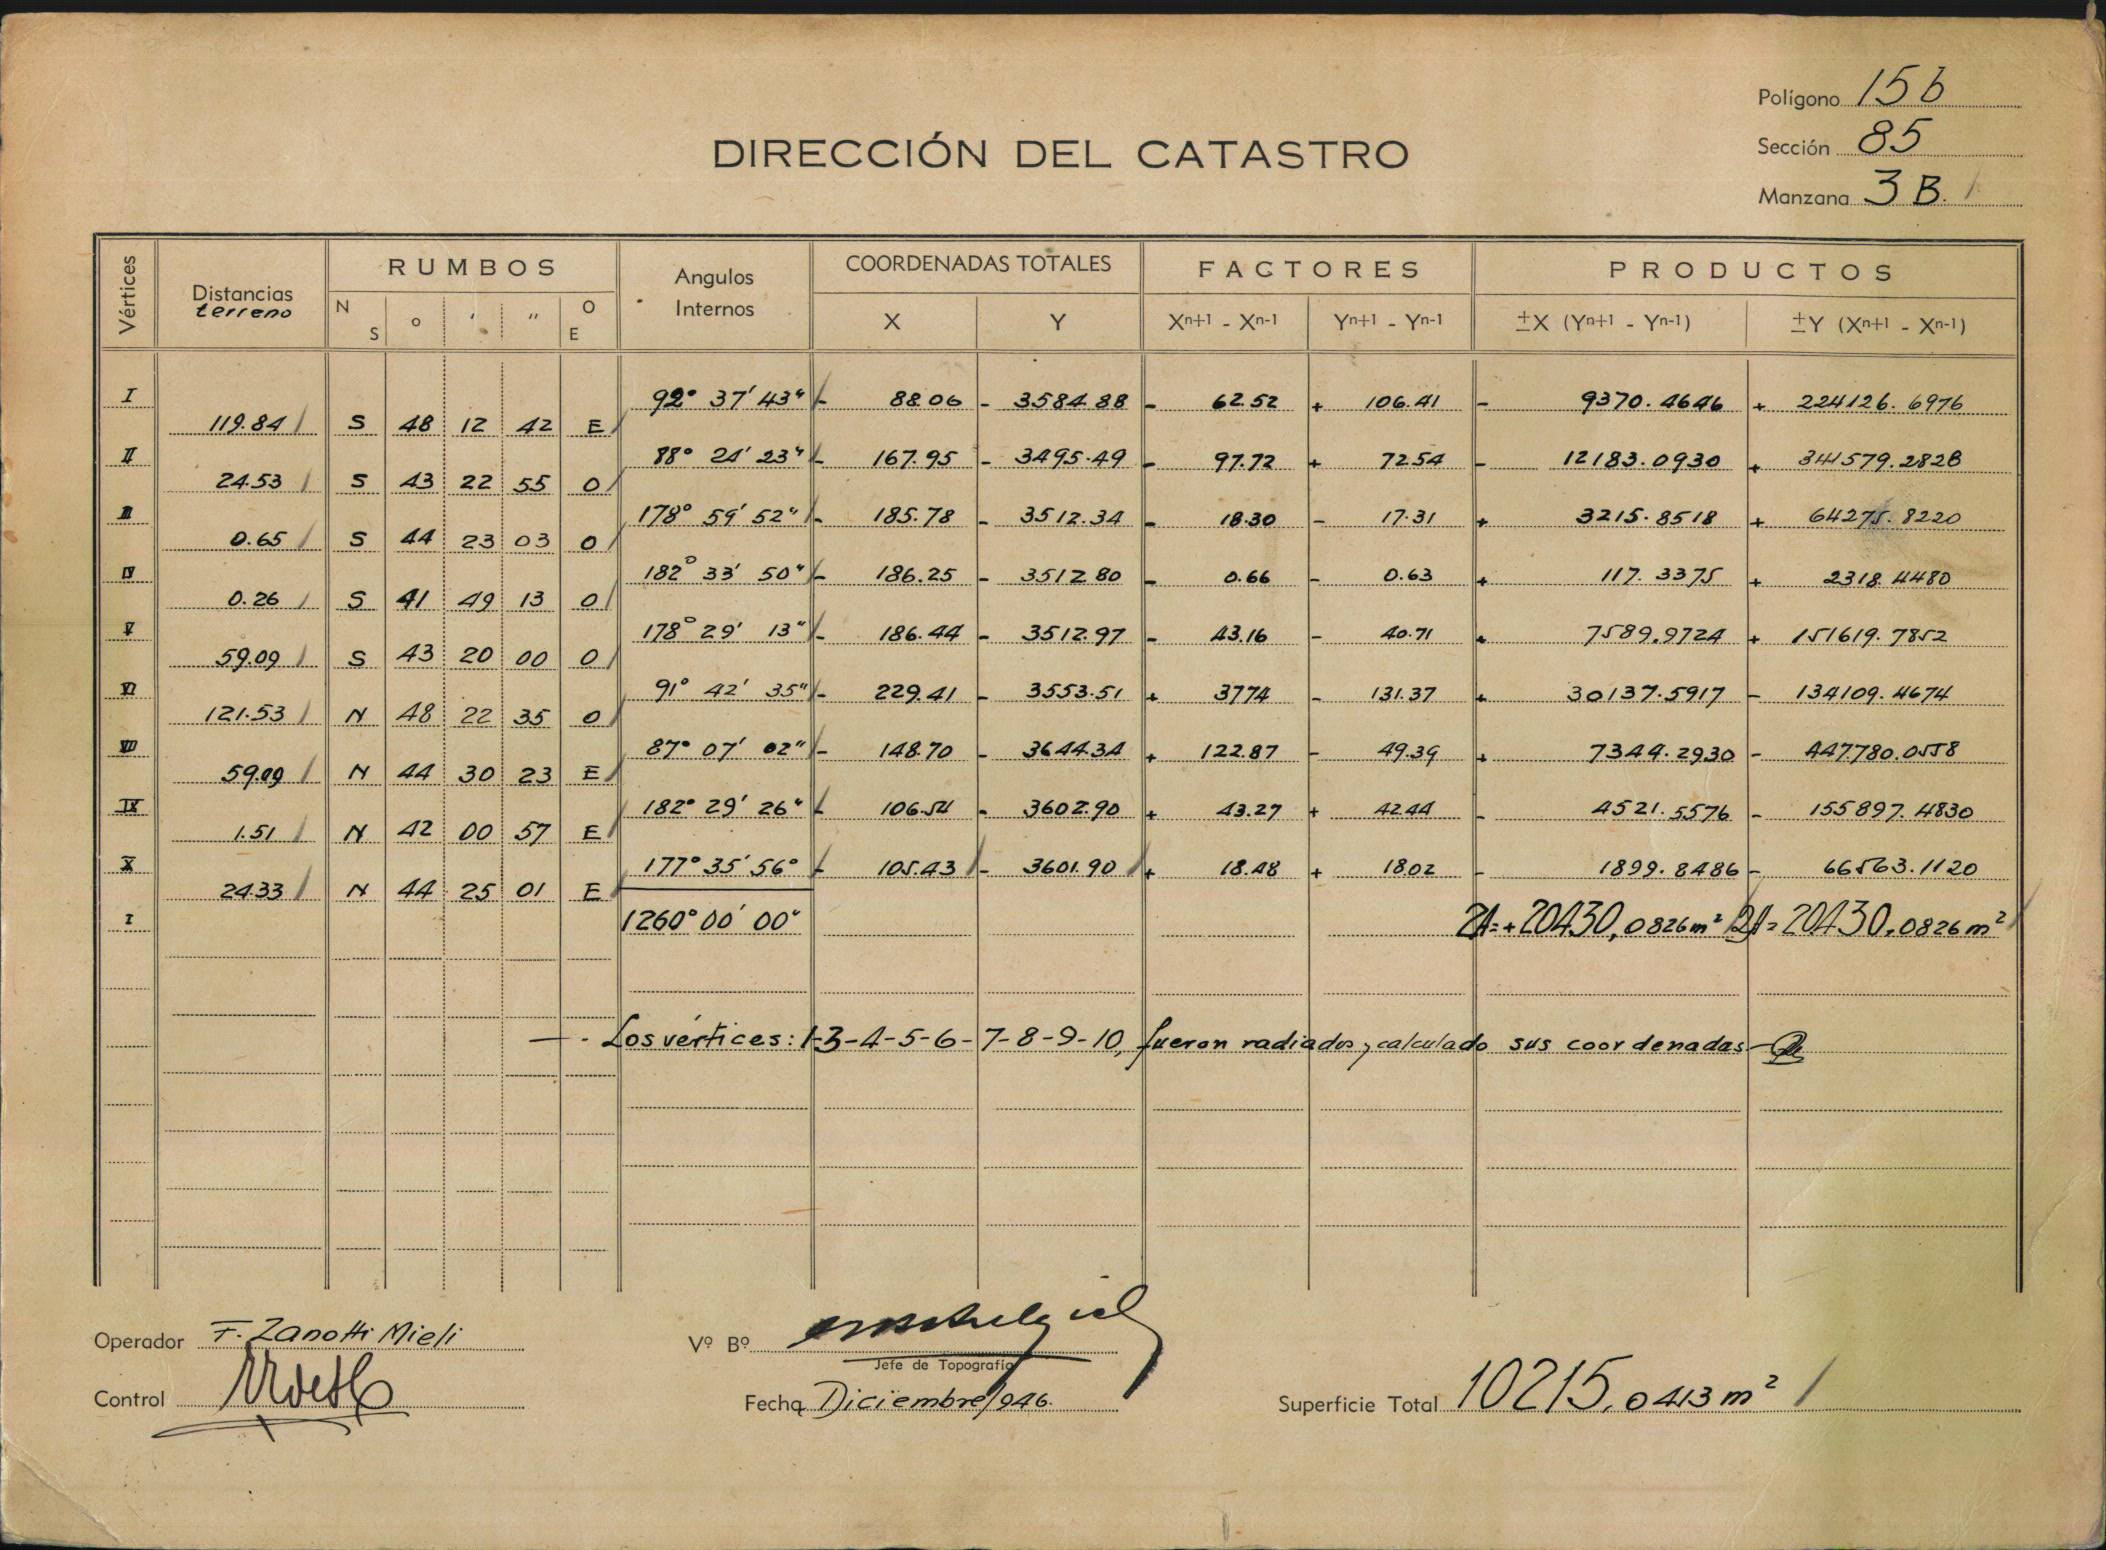 Polígono 15b
DIRECCIÓN DEL CATASTRO
Sección 85
Manzana 3 B.
Vértices Distancias terreno RUMBOS N S ° ' " O E Angulos Internos COORDENADAS TOTALES X Y FACTORES Xn+1 - Xn-1 Yn+1 - Yn-1 PRODUCTOS ±X (Yn+1 - Yn-1) ±Y (Xn+1 - Xn-1)
I 92° 37' 43" - 88.06 - 3584.88 - 62.52 + 106.41 - 9370.4646 + 224126.6976
119.84 S 48 12 42 E
II 88° 24' 23" - 167.95 - 3495.49 - 97.72 + 72.54 - 12183.0930 + 341579.2828
24.53 S 43 22 55 O
III 178° 59' 52" - 185.78 - 3512.34 - 18.30 - 17.31 + 3215.8518 + 64275.8220
0.65 S 44 23 03 O
IV 182° 33' 50" - 186.25 - 3512.80 - 0.66 - 0.63 + 117.3375 + 2318.4480
0.26 S 41 49 13 O
V 178° 29' 13" - 186.44 - 3512.97 - 43.16 - 40.71 + 7589.9724 + 151619.7852
59.09 S 43 20 00 O
VI 91° 42' 35" - 229.41 - 3553.51 + 37.74 - 131.37 + 30137.5917 - 134109.4674
121.53 N 48 22 35 O
VII 87° 07' 02" - 148.70 - 3644.34 + 122.87 - 49.39 + 7344.2930 - 447780.0558
59.09 N 44 30 23 E
IX 182° 29' 26" - 106.54 - 3602.90 + 43.27 + 42.44 - 4521.5576 - 155897.4830
1.51 N 42 00 57 E
X 177° 35' 56° - 105.43 - 3601.90 + 18.48 + 18.02 - 1899.8486 - 66563.1120
24.33 N 44 25 01 E
I 1260° 00' 00" 2A=+20430,0826m² 2A=20430,0826m²
Los vértices: 1-3-4-5-6-7-8-9-10, fueron radiados, calculado sus coordenadas
Operador F. Zanotti Mieli
Vº Bº
Jefe de Topografía
Control
Fecha Diciembre/946.
Superficie Total 10215,0413m²